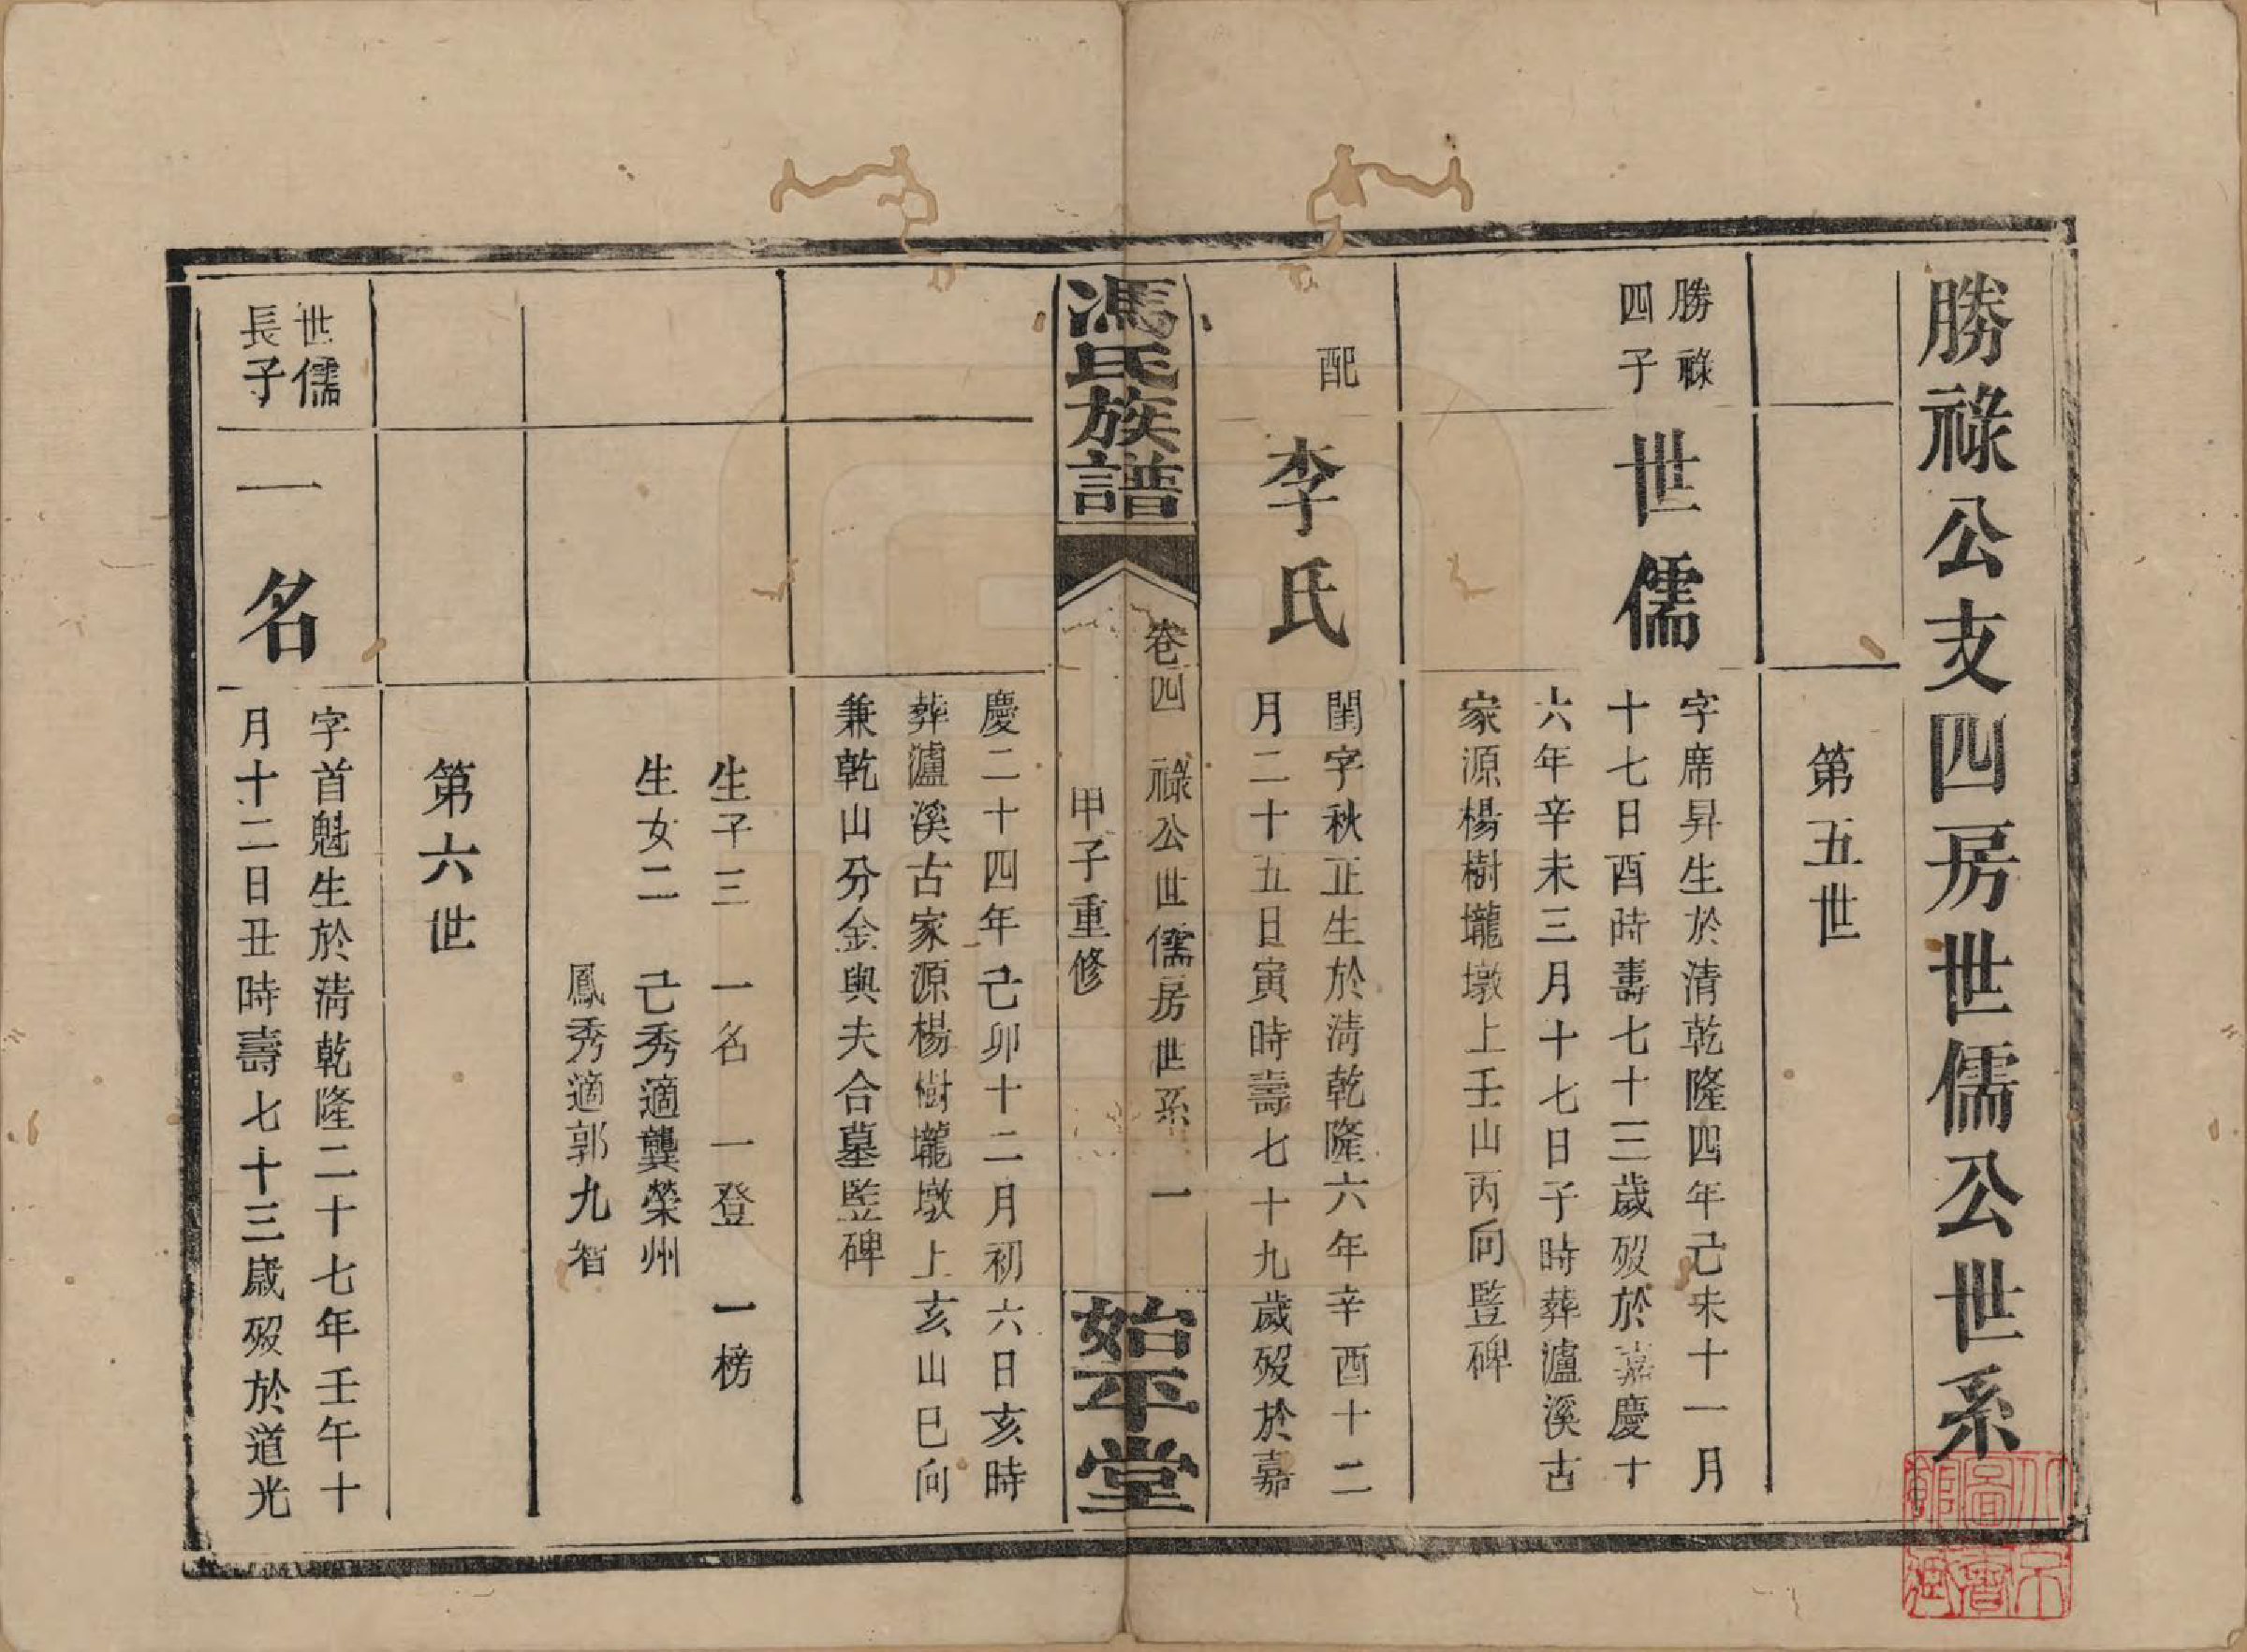 勝祿公支四房世儒公世系
第五世
勝祿
四子
世儒
字席昇生於清乾隆四年己未十一月
十七日酉時壽七十三歲歿於嘉慶十
六年辛未三月十七日子時葬瀘溪古
家源楊樹壠墩上壬山丙向豎碑
配
李氏
閨字秋正生於清乾隆六年辛酉十二
月二十五日寅時壽七十九歲歿於嘉
馮氏族譜
卷四 祿公世儒房世系 一
甲子重修
始平堂
慶二十四年己卯十二月初六日亥時
葬瀘溪古家源楊樹壠墩上亥山巳向
兼乾山分金與夫合墓豎碑
生子三 一名 一登 一榜
生女二 己秀適龔榮州
鳳秀適郭九智
第六世
世儒
長子
一名
字首魁生於清乾隆二十七年壬午十
月十二日丑時壽七十三歲歿於道光